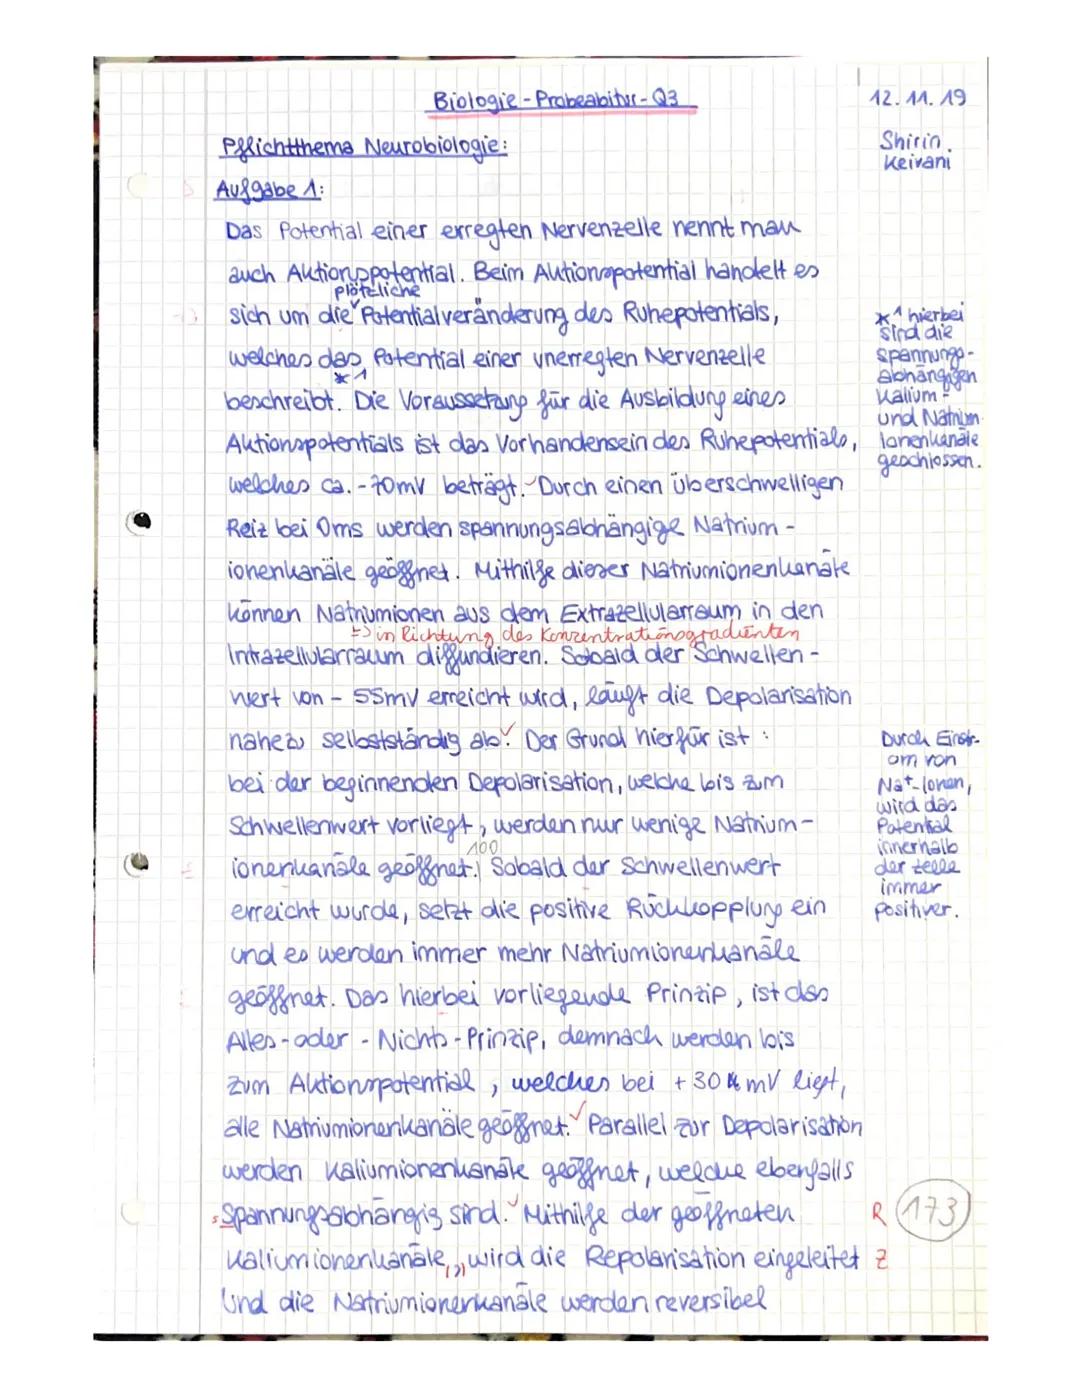 Biologie - Probeabitur - Q3
12. 11. 19
Pflichtthema Neurobiologie:
Shirin
Keivani
Aufgabe 1:
Das Potential einer erregten Nervenzelle nennt man
auch Aktionspotential. Beim Aktionspotential handelt es
plötzliche
sich um die Potentialveränderung des Ruhepotentials,
welches das Potential einer unerregten Nervenzelle
*1
beschreibt. Die Voraussetzung für die Ausbildung eines
Aktionspotentials ist das Vorhandensein des Ruhepotentials,
welches ca. -70mV beträgt. Durch einen überschwelligen
*1 hierbei
sind die
spannungs-
abhängigen
Kalium-
und Natrium
ionenkanäle
geschlossen.
Reiz bei 0ms werden spannungsabhängige Natrium-
ionenkanäle geöffnet. Mithilfe dieser Natriumionenkanäle
können Natriumionen aus dem Extrazellularraum in den
=> in Richtung des Konzentrationsgradienten
Intrazellularraum diffundieren. Sobald der Schwellen-
wert von - 55mV erreicht wird, läuft die Depolarisation
nahezu selbstständig ab. Der Grund hierfür ist :
bei der beginnenden Depolarisation, welche bis zum
Schwellenwert vorliegt, werden nur wenige Natrium-
100
ionenkanäle geöffnet. Sobald der Schwellenwert
erreicht wurde, setzt die positive Rückkopplung ein
Durch Einstr-
om von
Na+-Ionen,
wird das
Potential
innerhalb
der Zelle
immer
positiver.
und es werden immer mehr Natriumionenkanäle
geöffnet. Das hierbei vorliegende Prinzip, ist das
Alles - oder - Nichts - Prinzip, demnach werden bis
zum Aktionspotential, welches bei +30 mV liegt,
alle Natriumionenkanäle geöffnet. Parallel zur Depolarisation
werden Kaliumionenkanäle geöffnet, welche ebenfalls
spannungsabhängig sind. Mithilfe der geöffneten
R 173
Kaliumionenkanäle, wird die Repolarisation eingeleitet
Z
und die Natriumionenkanäle werden reversibel